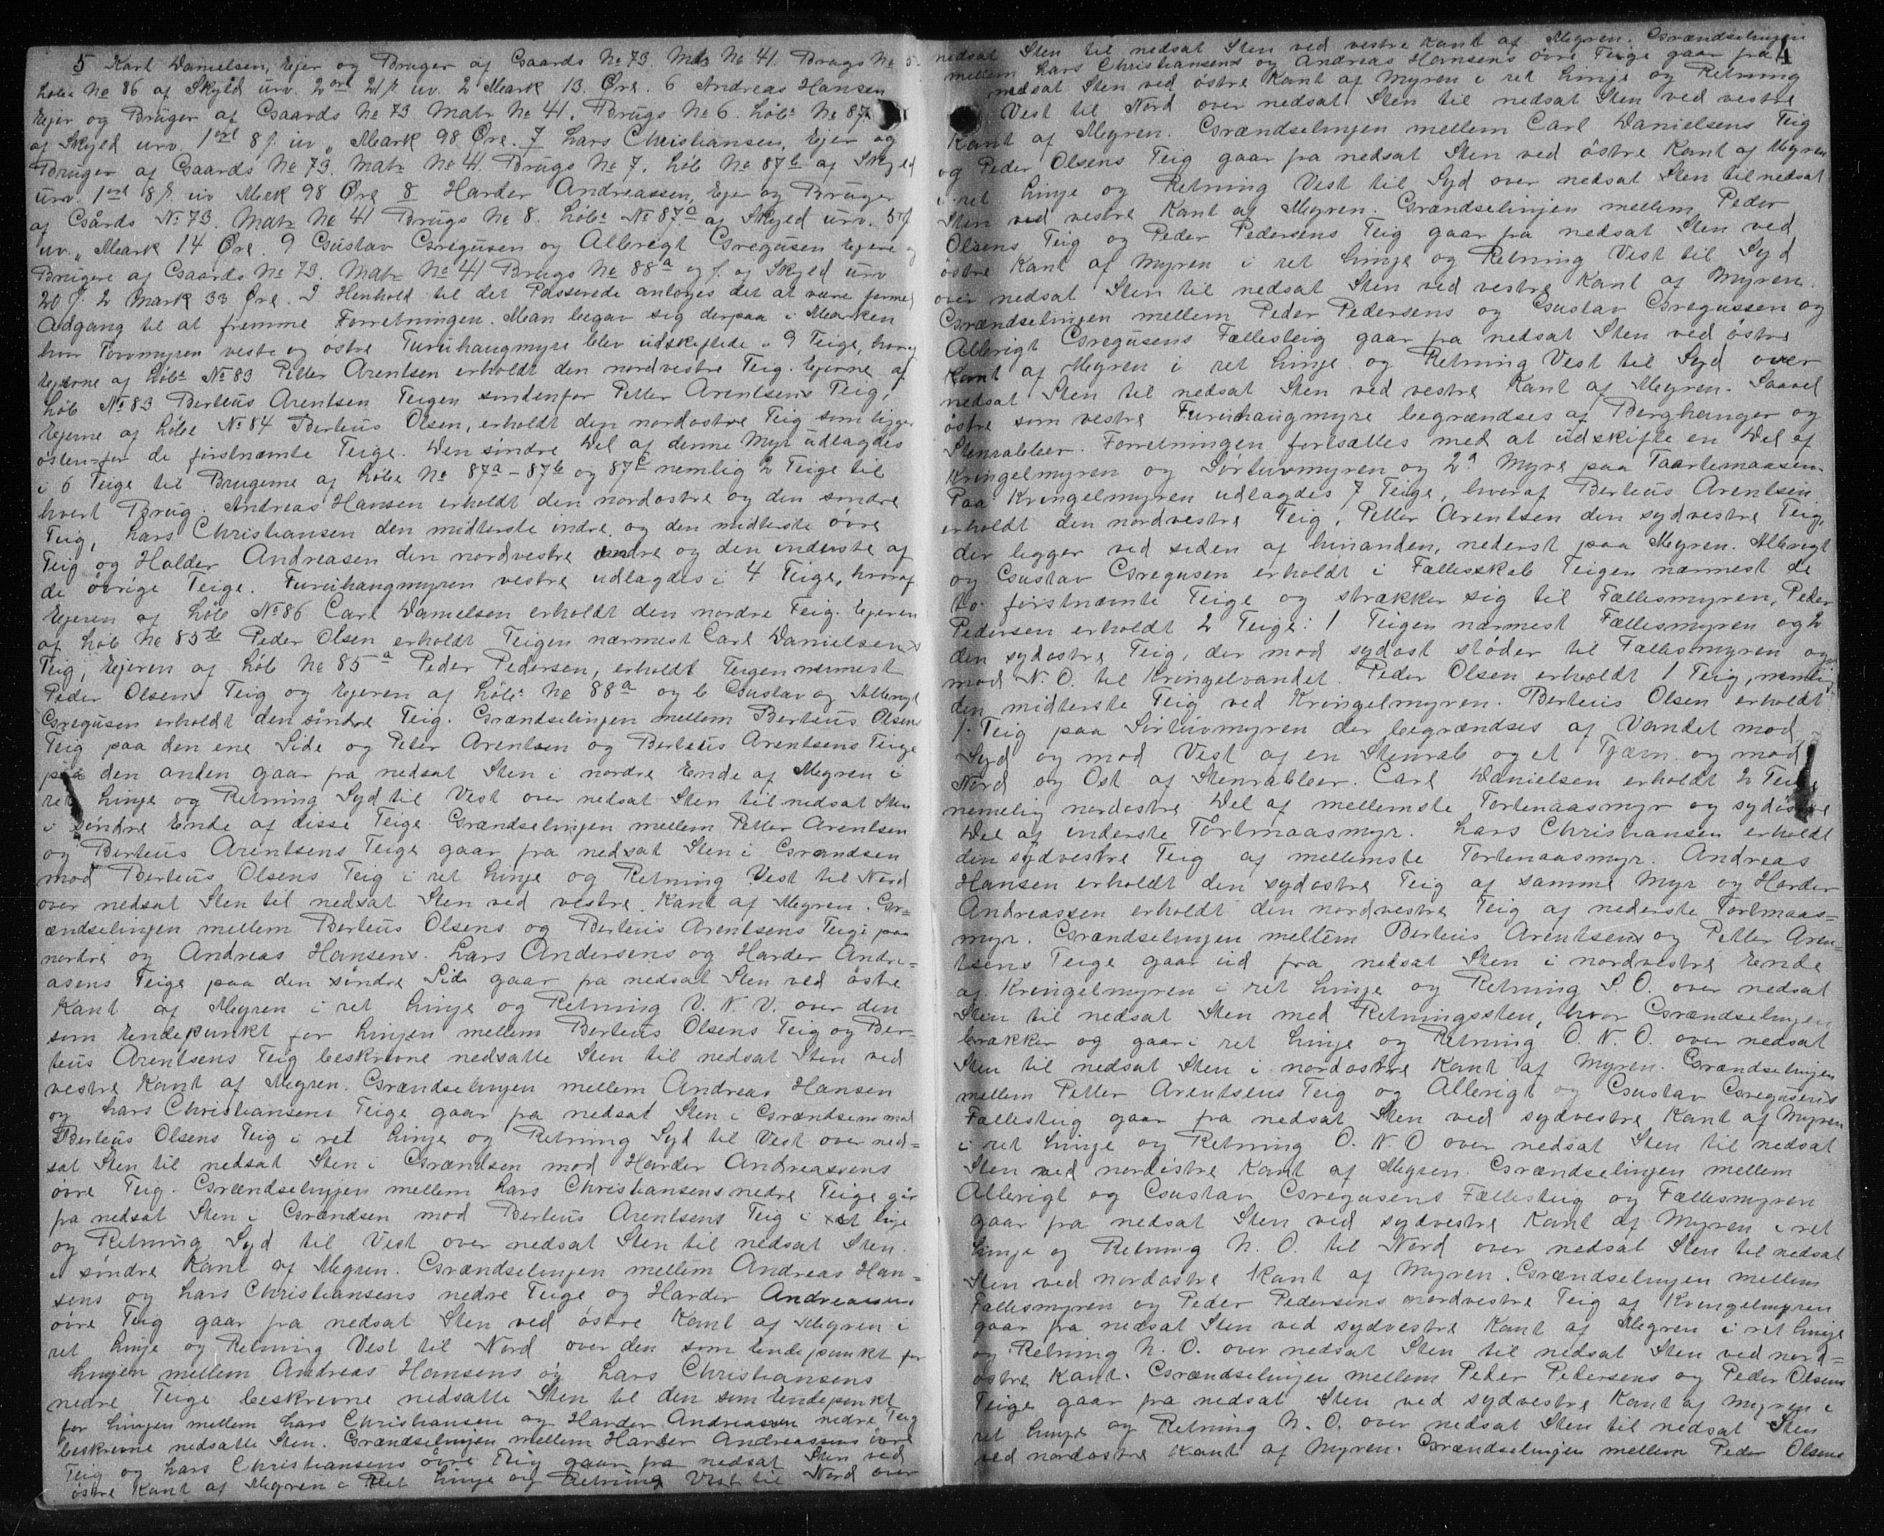 5 Karl Danielsen, Ejer og Bruger af Gaards No 73. Matr No 41. Brugs No 5.
Løbe No 86 af Skyld urv. 2 ort 21 f. uv. 2 Mark 13 Øre. 6 Andreas Hansen
Ejer og Bruger af Gaards No 73 Matr No 41. Brugs No 6. Løbe No 87
af Skyld urv. 1 ort 8 f. uv „ Mark 98 Øre. 7 Lars Christiansen, Ejer og
Bruger af Gaards No 73. Matr No 41 Brugs No 7. Løb No 87 b af Skyld
urv. 1 ort 8 f. uv Mrk 98 Øre 8 Harder Andreassen, Ejer og Bruger
af Gårds No 73. Matr No 41 Brugs No 8. Løbe No 87 a af Skyld urv. 5 f
uv. „ Mark 14 Øre. 9 Gustav Gregusen og Albrigt Gregusen Ejere og
Brugere af Gaards No 73. Matr No 41 Brugs No 88 a og f. af Skyld urv
20 f. 2 Mark 33 Øre. I Henhold til det Passerede antoges det at være formel
Adgang til at fremme Forretningen. Man begav sig derpaa i Marken
hvor Torvmyren vestre og østre Turuhaugmyre blev udskiftede i 9 Teige, hvoraf
Ejerne af Løbe No 83 Petter Arentsen erholdt den nordvestre Teig. Ejerne af
Løb No 83 Berteus Arentsen Teigen søndenfor Petter Arentsens Teig,
Ejerne af Løbe No 84 Berteus Olsen, erholdt den nordostre Teig som ligger
østen for de førstnæmte Teige. Den søndre Del af denne Myr udlagdes
i 6 Teige til Brugerne af Løbe No 87 a - 87 b og 87 c nemlig 2 Teige til
hvert Brug. Andreas Hansen erholdt den nordostre og den søndre
Teig, Lars Christiansen den midterste indre og den midterste øvre
Teig og Halder Andreasen den nordvestre indre og den inderste af
de øvrige Teige. Furuhaugmyren vestre udlagdes i 4 Teige, hvoraf
Ejeren af Løb No 86 Carl Danielsen erholdt den nordre Teig. Ejeren
af Løb No 85 b Peder Olsen erholdt Teigen nærmest Carl Danielsens
Teig, Ejeren af Løb No 85 a Peder Pedersen, erholdt Teigen nærmest
Peder Olsens Teig og Ejeren af Løbe No 88 a og b Gustav og Albrigt
Gregusen erholdt den søndre Teig. Grændselinjen mellem Berteus Olsens
Teig paa den ene Side og Peter Arentsen og Berteus Arentsens Teige
paa den anden gaar fra nedsat Sten i nordre Ende af Myren i
ret Linje og Retning Syd til Vest over nedsat Sten til nedsat Sten
i søndre Ende af disse Teige. Grændselinjen mellem Petter Arentsen
og Berteus Arentsens Teige gaar fra nedsat Sten i Grændsen
mod Berteus Olsens Teig i ret Linje og Retning Vest til Nord
over nedsat Sten til nedsat Sten ved vestre Kant af Myren. Gr=
ændselinjen mellem Berteus Olsens og Berteus Arentsens Teige paa
nordre og Andreas Hansens. Lars Andersens og Harder Andre=
asens Teige paa den søndre Side gaar fra nedsat Sten ved østre
Kant af Myren i ret Linje og Retning V. N. V. over den
som Endepunkt for Linjen mellem Berteus Olsens Teig og Ber=
teus Arentsens Teig beskrevne nedsatte Sten til nedsat Sten ved
vestre Kant af Myren. Grændselinjen mellem Andreas Hansen
og Lars Christiansens Teige gaar fra nedsat Sten i Grændsen mod
Berteus Olsens Teig i ret Linje og Retning Syd til Vest over ned=
sat Sten til nedsat Sten i Grændsen mod Harder Andreasens
øvre Teig. Grændselinjen mellem Lars Christiansens nedre Teige går
fra nedsat Sten i Grændsen mod Berteus Arentsens Teig i ret linje
og Retning Syd til Vest over nedsat Sten til nedsat Sten
i søndre Kant af Myren. Grændselinjen mellem Andreas Han=
sens og Lars Christiansens nedre Teige og Harder Andreasens
øvre Teig gaar fra nedsat Sten ved østre Kant af Myren i
ret Linje og Retning Vest til Nord over den som Endepunkt for
Linjen mellem Andreas Hansens og Lars Christiansens
nedre Teige beskrevne nedsatte Sten til den som Endepunkt
for Linjen mellem Lars Christiansen og Harder Andreasen nedre Teig
beskrevne nedsatte Sten. Grændselinjen mellem Harder Andreasens øvre
Teig og Lars Christiansens øvre Teig gaar fra nedsat Sten ved
østre Kant af Myren i Ret Linje og Retning Vest til Nord over
4
nedsat Sten til nedsat Sten ved vestre Kant af Myren. Grændselinjen
mellem Lars Christiansens og Andreas Hansens øvre Teige gaar fra
nedsat Sten ved østre Kant af Myren i ret Linje og Retning
Vest til Nord over nedsat Sten til nedsat Sten ved vestre
Kant af Myren. Grændselinjen mellem Carl Danielsens Teig
og Peder Olsens Teig gaar fra nedsat Sten ved østre Kant af Myren
i ret Linje og Retning Vest til Syd over nedsat Sten til nedsat
Sten ved vestre Kant af Myren. Grændselinjen mellem Peder
Olsens Teig og Peder Pedersens Teig gaar fra nedsat Sten ved
østre Kant af Myren i ret Linje og Retning Vest til Syd
over nedsat Sten til nedsat Sten ved vestre Kant af Myren.
Grændselinjen mellem Peder Pedersens og Gustav Gregussen og
Albrigt Gregusens Fællesteig gaar fra nedsat Sten ved østre
Kant af Myren i ret Linje og Retning Vest til Syd over
nedsat Sten til nedsat Sten ved vestre Kant af Myren. Saavel
østre som vestre Furuhaugmyre begrændses af Berghanger og
Stenrabber. Forretningen fortsattes med at udskifte en Del af
Kringelmyren og Sørturvmyren og 2de Myre paa Taartemaasen
Paa Kringelmyren udlagdes 7 Teige, hvoraf Berteus Arentsen
erholdt den nordvestre Teig, Petter Arentsen den sydvestre Teig
der ligger ved siden af hinanden, nederst paa Myren. Albrigt
og Gustav Gregusen erholdt i Fællesskab Teigen nærmest de
to førstnæmte Teige og strækker sig til Fællesmyren, Peder
Pedersen erholdt 2 Teige: 1 Teigen nærmest Fællesmyren og 2
den sydostre Teig, der mod sydost støder til Fællesmyren og
mod N. O. til Kringelvandet. Peder Olsen erholdt 1 Teig, nemlig
den midterste Teig ved Kringelmyren. Berteus Olsen erholdt
1 Teig paa Sørturvmyren der begrændses af Vandet mod
Syd og mod Vest af en Stenrab og et Tjærn og mod
Nord og Ost af Stenrabber. Carl Danielsen erholdt 2 Teige
nemelig nordostre Del af mellemste Tortenaasmyr og sydostre
Del af inderste Tortmaasmyr. Lars Christiansen erholdt
den sydvestre Teig af mellemste Tortenaasmyr. Andreas
Hansen erholdt den sydostre Teig af samme Myr og Harder
Andreassen erholdt den nordvestre Teig af nederste Tortmaas=
myr. Grændselinjen mellem Berteus Arentsens og Petter Aren=
tsens Teige gaar ud fra nedsat Sten i nordvestre Ende
af Kringelmyren i ret Linje og Retning S. O. over nedsat
Sten til nedsat Sten med Retningssten, hvor Grændselinjen
brækker og gaar i ret Linje og Retning O. N. O. over nedsat
Sten til nedsat Sten i nordostre Kant af Myren. Grændselinjen
mellem Petter Arentsens Teig og Albrigt og Gustav Gregusens
Fællesteig gaar fra nedsat Sten ved sydvestre Kant af Myren
i ret Linje og Retning O. N. O over nedsat Sten til nedsat
Sten ved nordostre Kant af Myren. Grændselinjen mellem
Albrigt og Gustav Gregusens Fællesteig og Fællesmyren
gaar fra nedsat Sten ved sydvestre Kant af Myren i ret
Linje og Retning N. O. til Nord over nedsat Sten til nedsat
Sten ved nordostre Kant af Myren. Grændselinjen mellem
Fællesmyren og Peder Pedersens nordvestre Teig af Kringelmyren
gaar fra nedsat Sten ved sydvestre Kant af Myren i ret Linje
og Retning N. O. over nedsat Sten til nedsat Sten ved nord=
østre Kant. Grændselinjen mellem Peder Pedersens og Peder Olsens
Teige gaar fra nedsat Sten ved sydvestre Kant af Myren i
ret Linje og Retning N. O. over nedsat Sten til nedsat Sten
ved nordostre Kant af Myren. Grændselinjen mellem Peder Olsens